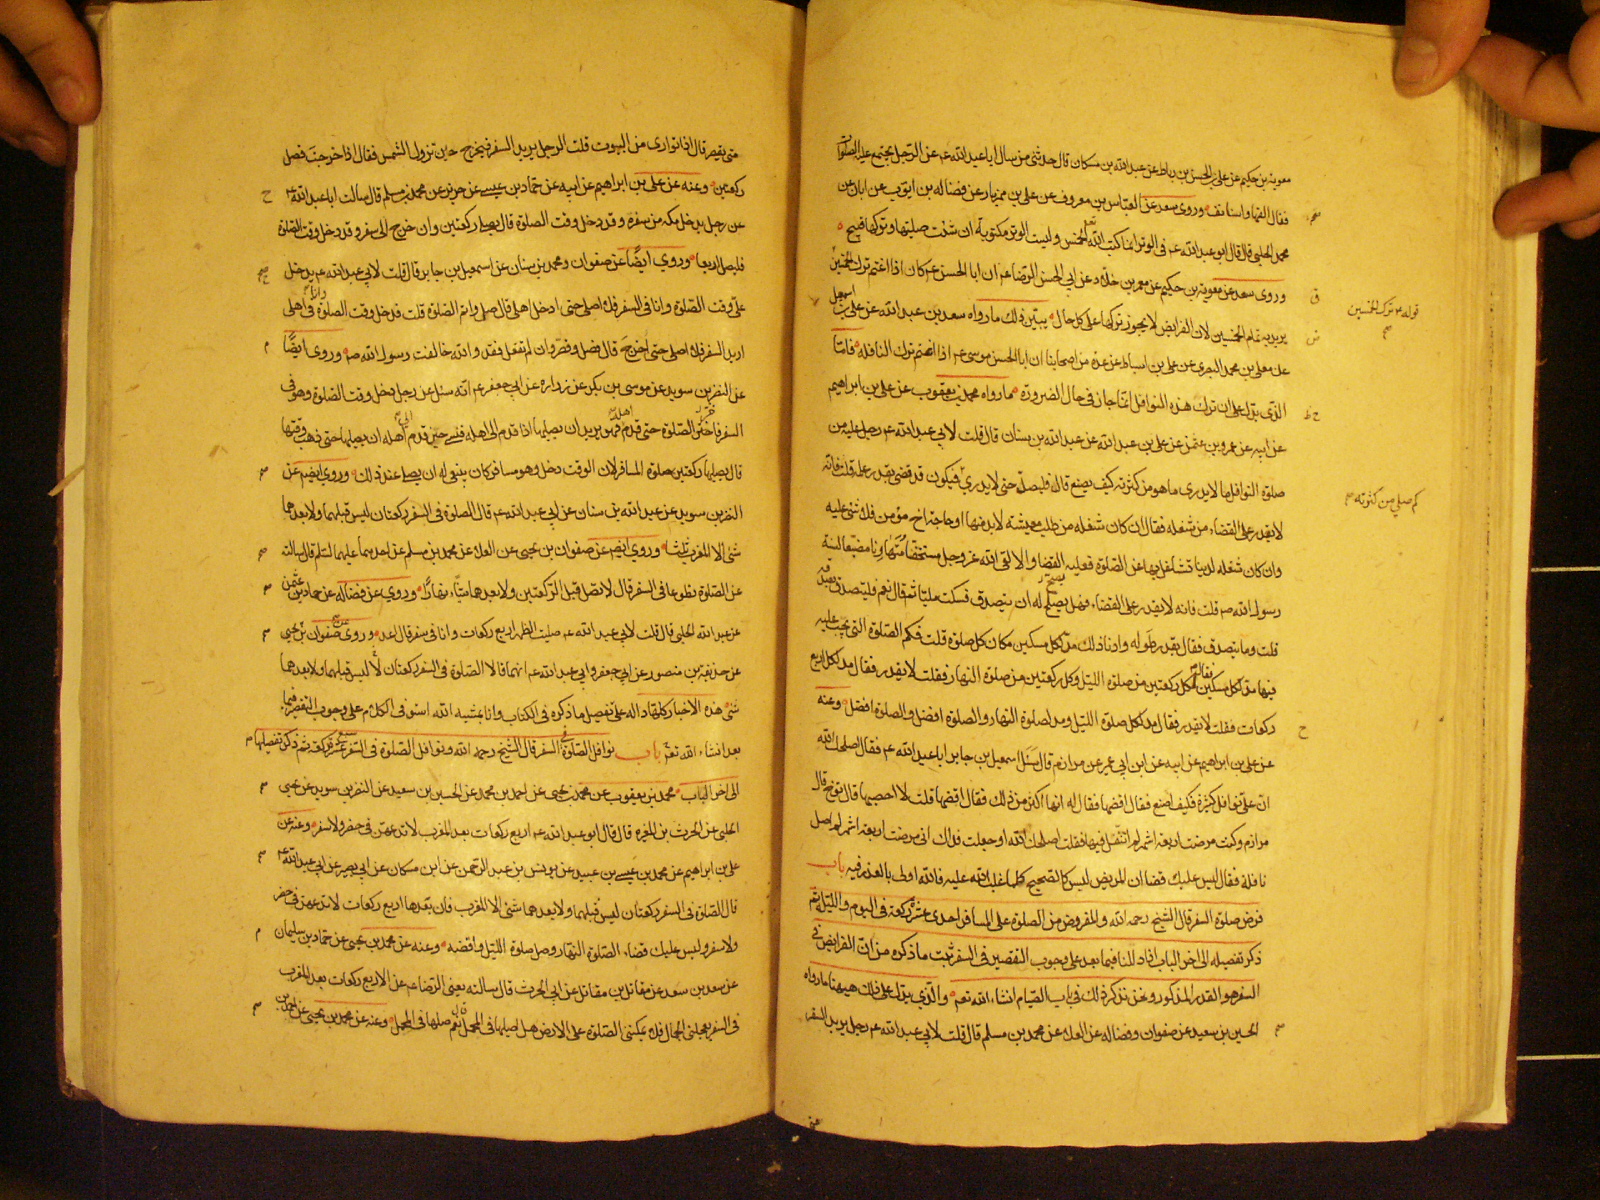 معوية بن حكيم عن علي بن الحسن بن رباط عن عبد الله بن مسكان قال حدثني من سال ابا عبد الله ع عن الرجل يجتمع عليه الصلوات
فقال القها واستانف وروى سعد عن العباس بن معروف عن علي بن مهزيار عن فضاله بن ايوب عن ابان عن
محمد الحلبي قال قال ابو عبد الله ع في الوتر انما كتب الله الخمس وليست الوتر مكتوبة ان شئت صليتها وتركها قبيح
وروى سعد عن معوية بن حكيم عن معمر بن خلاد عن ابي الحسن الرضا ع ان ابا الحسن ع كان اذا اغتم ترك الخمسين
قوله ع ترك الخمسين
يريد به تمام الخمسين لان الفرايض لا يجوز تركها على كل حال يبين ذلك ما رواه سعد بن عبد الله عن علي بن اسمعيل
عن معلى بن محمد البصري عن علي بن اسباط عن عدة من اصحابنا ان ابا الحسن موسى ع اذا اغتم ترك النافله فاما
الذي يدل على ان ترك هذه النوافل انما جاز في حال الضرورة ما رواه محمد بن يعقوب عن علي بن ابراهيم
عن ابيه عن عمرو بن عثمن عن علي بن عبد الله عن عبد الله بن سنان قال قلت لابي عبد الله ع رجل عليه من
صلوة النوافل ما لا يدرى ما هو من كثرته كيف يصنع قال فليصل حتى لا يدري فيكون قد قضى بقدر علمه قلت فانه
لا يقدر على القضاء من شغله فقال ان كان شغله من طلب معيشته لا بد منها او حاجة اخ مؤمن فلا شئ عليه
وان كان شغله لدنيا تشاغل بها عن الصلوة فعليه القضا والا لقى الله عز وجل مستخفا متهاونا مضيعا لسنة
رسول الله ص قلت فانه لا يقدر على القضاء فهل يصلح له ان يتصدق فسكت مليا ثم قال نعم فليتصدق بصدقة
قلت وما يتصدق فقال بقدر طوله وادنا ذلك مد لكل مسكين مكان كل صلوة قلت فكم الصلوة التي يجب عليه
فيها مد لكل مسكين فقال لكل ركعتين من صلوة الليل وكل ركعتين من صلوة النهار فقلت لا يقدر فقال مد لكل اربع
ركعات فقلت لا يقدر فقال مد لكل صلوة الليل ومد لصلوة النهار والصلوة افضل والصلوة افضل وعنه
عن علي بن ابراهيم عن ابيه عن ابن ابي عمير عن مرازم قال سئل اسمعيل بن جابر ابا عبد الله ع فقال اصلحك الله
ان علي نوافل كثيرة فكيف اصنع فقال اقضها فقال له انها اكثر من ذلك فقال اقضها قلت لا احصيها قال توخ قال
مرازم وكنت مرضت اربعة اشهر لم اتنفل فيها فقلت اصلحك الله او جعلت فداك اني مرضت اربعة اشهر لم اصل
نافلة فقال ليس عليك قضا ان المريض ليس كالصحيح كلما غلب الله عليه فالله اولى بالعذر فيه باب
فرض صلوة السفر قال الشيخ رحمه الله والمفروض من الصلوة على المسافر احدى عشرة ركعة في اليوم والليلة ثم
ذكر تفصيله الى اخر الباب اذا دللنا فيما بعد على وجوب التقصير في السفر ثبت ما ذكره من ان الفرايض في
السفر هو القدر المذكور ونحن نذكر ذلك في باب الصيام انشاء الله تعم والذي يدل على ذلك هيهنا ما رواه
الحسين بن سعيد عن صفوان وفضاله عن العلا عن محمد بن مسلم قال قلت لابي عبد الله ع رجل يريد السفر
متى يقصر قال اذا توارى من البيوت قلت الرجل يريد السفر فيخرج حين تزول الشمس فقال اذا خرجت فصل
ركعتين وعنه عن علي بن ابراهيم عن ابيه عن حماد بن عيسى عن حريز عن محمد بن مسلم قال سالت ابا عبد الله ع
عن رجل يدخل مكه من سفره وقد دخل وقت الصلوة قال يصلي ركعتين وان خرج الى سفر وقد دخل وقت الصلوة
فليصل اربعا وروي ايضا عن صفوان ومحمد بن سنان عن اسمعيل بن جابر قال قلت لابي عبد الله ع يدخل
علي وقت الصلوة وانا في السفر فلا اصلي حتى ادخل اهلي قال صل واتم الصلوة قلت قد خل وقت الصلوة وانا في اهلي
اريد السفر فلا اصلي حتى اخرج قال فصل وقصر وان لم تفعل فقد والله خالفت رسول الله ص وروى ايضا
عن النضر بن سويد عن موسى بن بكر عن زراره عن ابي جعفر ع انه سئل عن رجل دخل وقت الصلوة وهو في
السفر فاخر الصلوة حتى قدم فهو يريد ان يصليها اذا قدم الى اهله فنسى حين قدم الى اهله ان يصليها حتى ذهب وقتها
قال يصليها ركعتين صلوة المسافر لان الوقت دخل وهو مسافر كان ينبغي له ان يصلي عند ذلك وروي ايضم عن
النضر بن سويد عن عبد الله بن سنان عن ابي عبد الله ع قال الصلوة في السفر ركعتان ليس قبلهما ولا بعدهما
شئ الا المغرب ثلثا وروي ايضم عن صفوان بن يحيى عن العلا عن محمد بن مسلم عن احدهما عليهما السلم قال سالته
عن الصلوة تطوعا في السفر قال لا تصل قبل الركعتين ولا بعدهما شيئا نهارا وروي عن فضاله عن حماد بن عثمن
عن عبد الله الحلبي قال قلت لابي عبد الله ع صليت الظهر اربع ركعات وانا في سفر قال اعد وروى عن صفوان بن يحيى
عن حذيفة بن منصور عن ابي جعفر وابي عبد الله ع انهما قالا الصلوة في السفر ركعتان ليس قبلهما ولا بعدهما
شئ هذه الاخبار كلها دالة على تفصيل ما ذكره في الكتاب وانا بمشية الله استوفى الكلام على وجوب التقصير فيما
بعد انشاء الله تعم باب نوافل الصلوة في السفر قال الشيخ رحمه الله ونوافل الصلوة في السفر سبع عشرة ركعة ثم ذكر تفصيلها
الى اخر الباب محمد بن يعقوب عن محمد بن يحيى عن احمد بن محمد عن الحسين بن سعيد عن النضر بن سويد عن يحيى
الحلبي عن الحرث بن المغيره قال قال ابو عبد الله ع اربع ركعات بعد المغرب لا تدعهن في حضر ولا سفر وعنه عن
علي بن ابراهيم عن محمد بن عيسى بن عبيد عن يونس بن عبد الرحمن عن ابن مسكان عن ابي بصير عن ابي عبد الله ع
قال الصلوة في السفر ركعتان ليس قبلهما ولا بعدهما شئ الا المغرب فان بعدها اربع ركعات لا تدعهن في حضر
ولا سفر وليس عليك قضاء الصلوة النهار وصل صلوة الليل واقضه وعنه عن محمد بن يحيى عن حماد بن سليمان
عن سعد بن سعد عن مقاتل بن مقاتل عن ابي الحرث قال سالته يعني الرضا ع عن الاربع ركعات بعد المغرب
في السفر يعجلني الجمال فلا يمكنني الصلوة على الارض هل اصليها في المحمل قال نعم صلها في المحمل وعنه عن محمد بن يحيى عن احمد بن